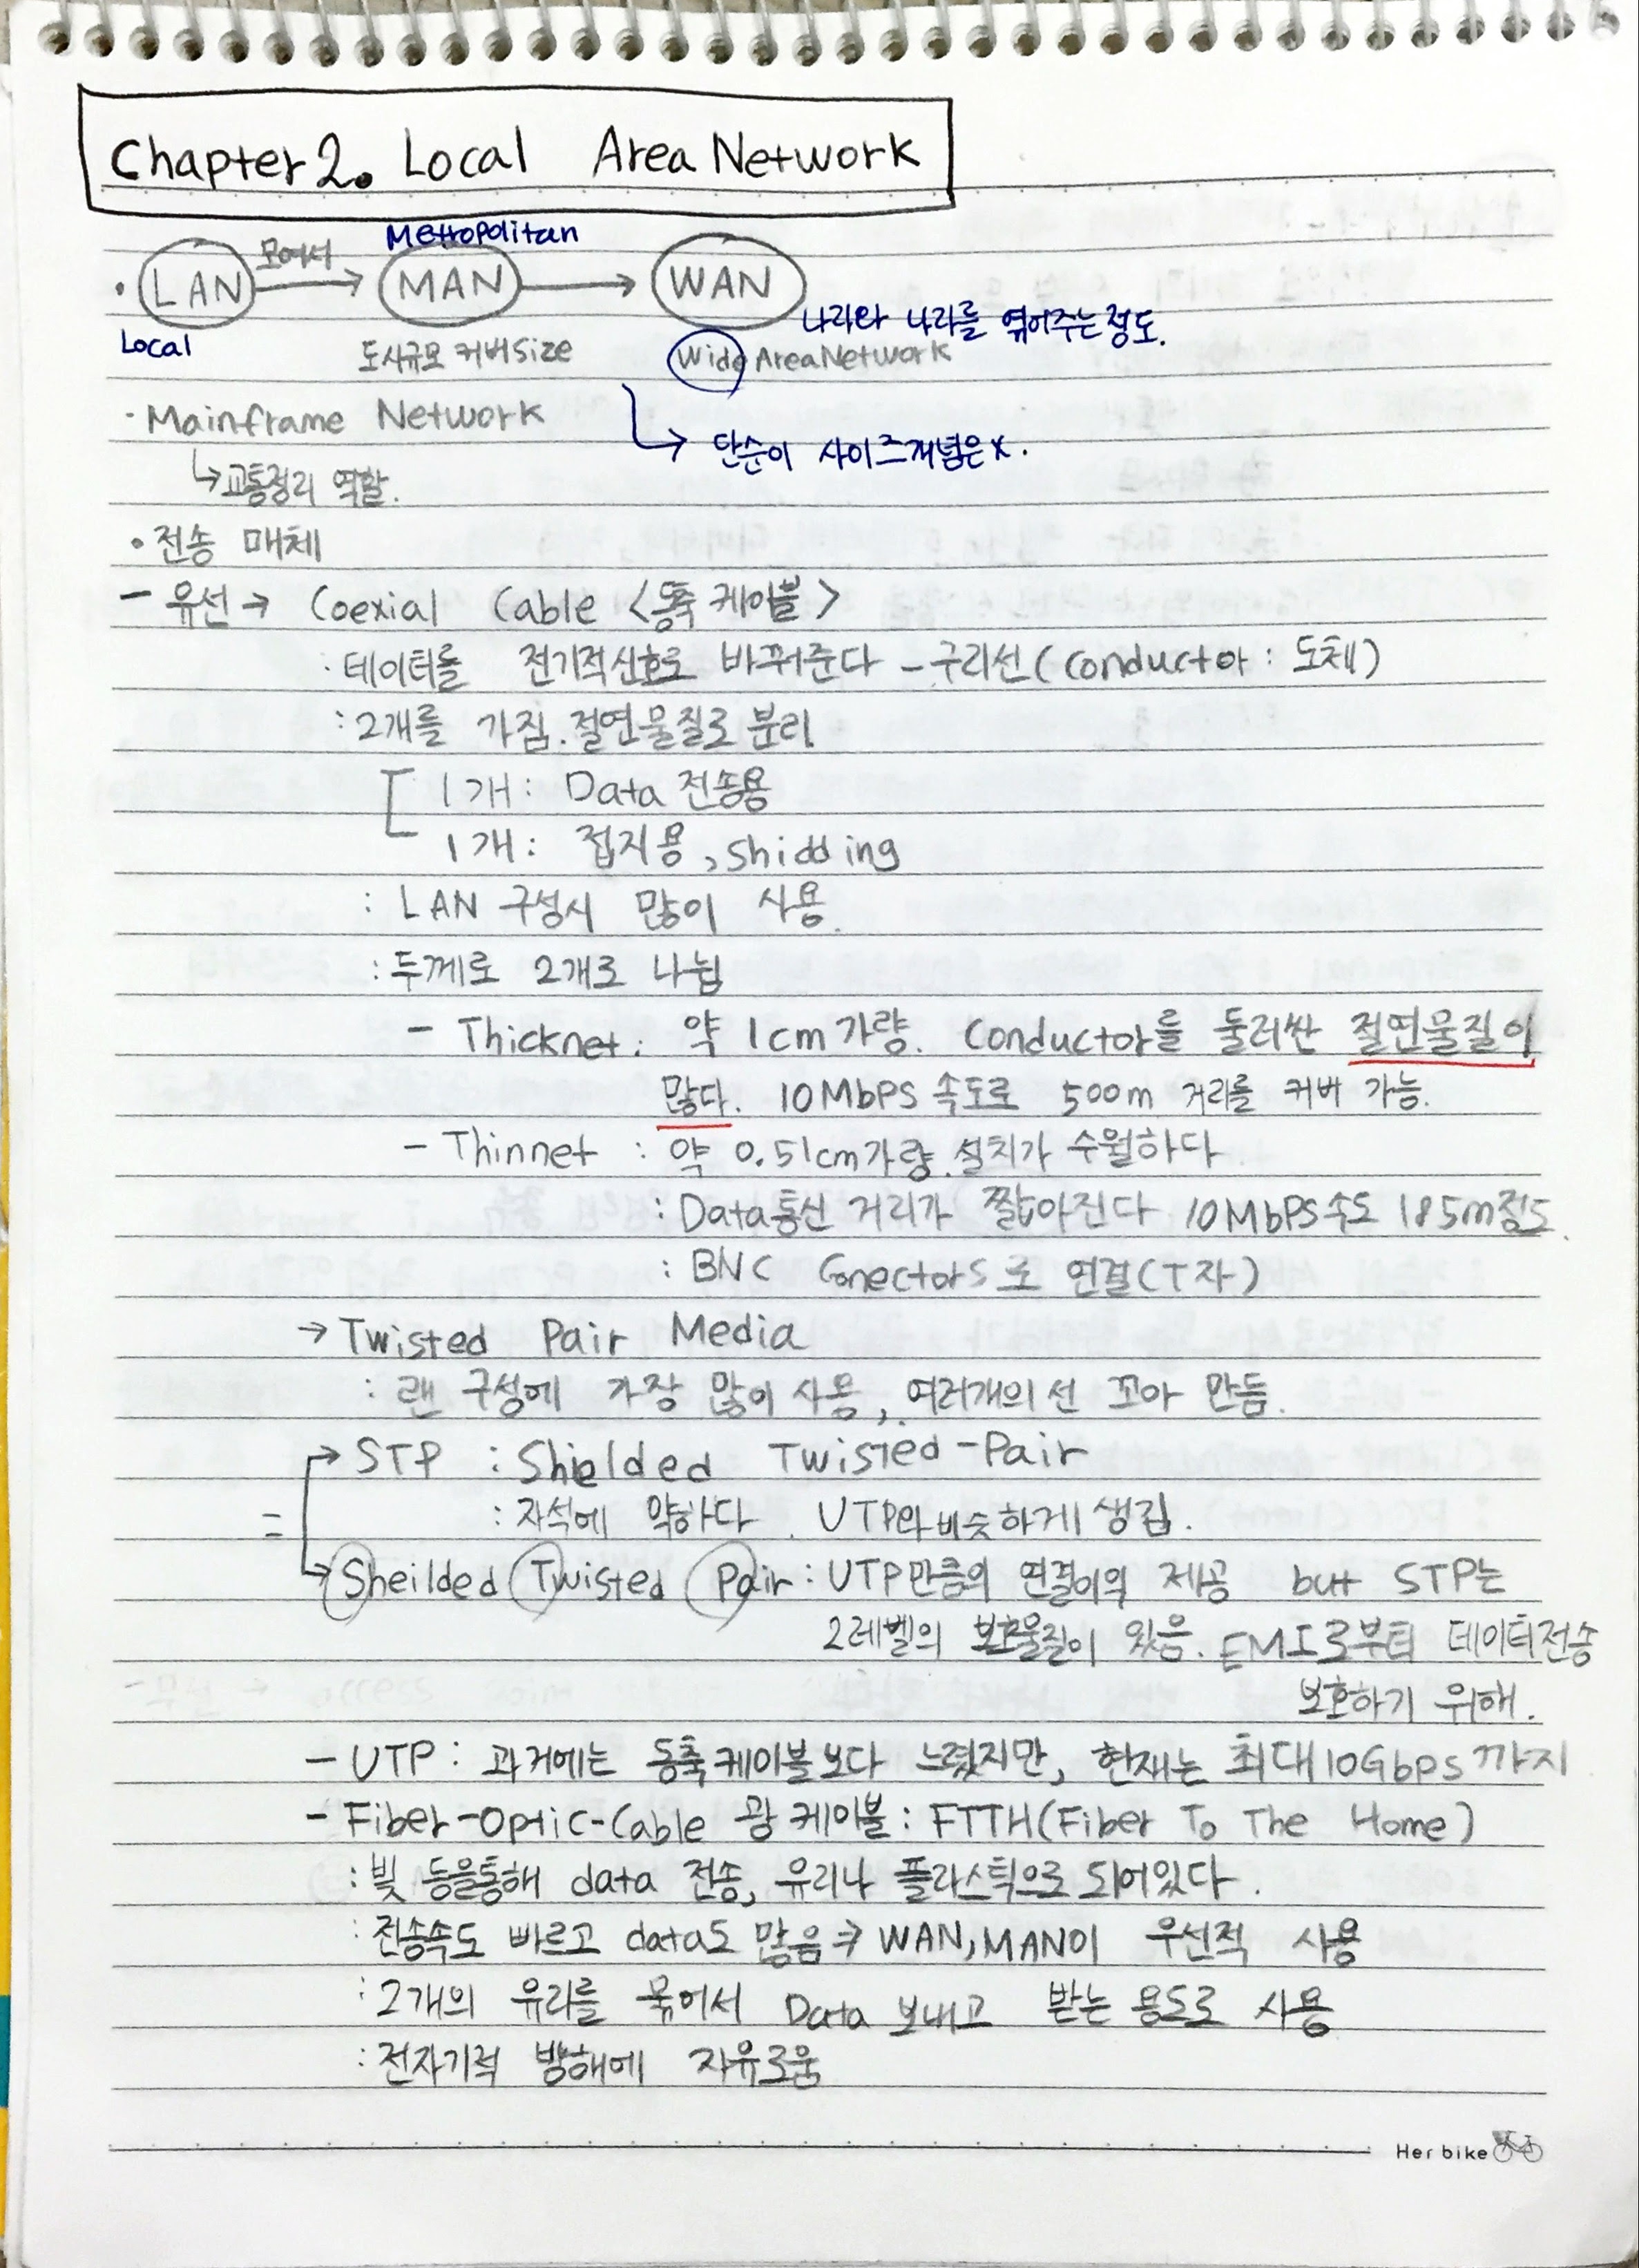 Chapter2. Local Area Network
Metropolitan
· LAN 모여서 → MAN → WAN
나라와 나라를 엮어주는정도.
Local 도시규모 커버size Wide AreaNetwork
· Mainframe Network
↳ 단순이 사이즈개념은x.
↳교통정리 역할.
· 전송 매체
- 유선 → Coexial Cable <동축 케이블>
· 데이터를 전기적신호로 바꿔준다 - 구리선(conductor : 도체)
: 2개를 가짐. 절연물질로 분리
1개 : Data 전송용
1개 : 접지용, shidding
: LAN 구성시 많이 사용.
: 두께로 2개로 나뉨
- Thicknet : 약 1cm가량. Conductor를 둘러싼 절연물질이
많다. 10Mbps 속도로 500m 거리를 커버 가능.
- Thinnet : 약 0.51cm가량. 설치가 수월하다
: Data통신 거리가 짧아진다 10Mbps속도 185m정도.
: BNC Conectors로 연결(T자)
→ Twisted Pair Media
: 랜 구성에 가장 많이 사용, 여러개의 선 꼬아 만듬.
→ STP : Shielded Twisted-Pair
: 자석에 약하다. UTP와 비슷하게 생김.
= → Sheilded Twisted Pair : UTP만큼의 제공 but STP는
2레벨의 보호물질이 있음. EMI로부터 데이터전송
보호하기 위해.
- UTP : 과거에는 동축케이블보다 느렸지만, 현재는 최대10Gbps까지
- Fiber-Optic-Cable 광 케이블 : FTTH(Fiber To The Home)
: 빛 등을통해 data 전송, 유리나 플라스틱으로 되어있다.
: 전송속도 빠르고 data도 많음 → WAN, MAN이 우선적 사용
: 2개의 유리를 묶어서 Data 보내고 받는 용도로 사용
: 전자기적 방해에 자유로움
Her bike